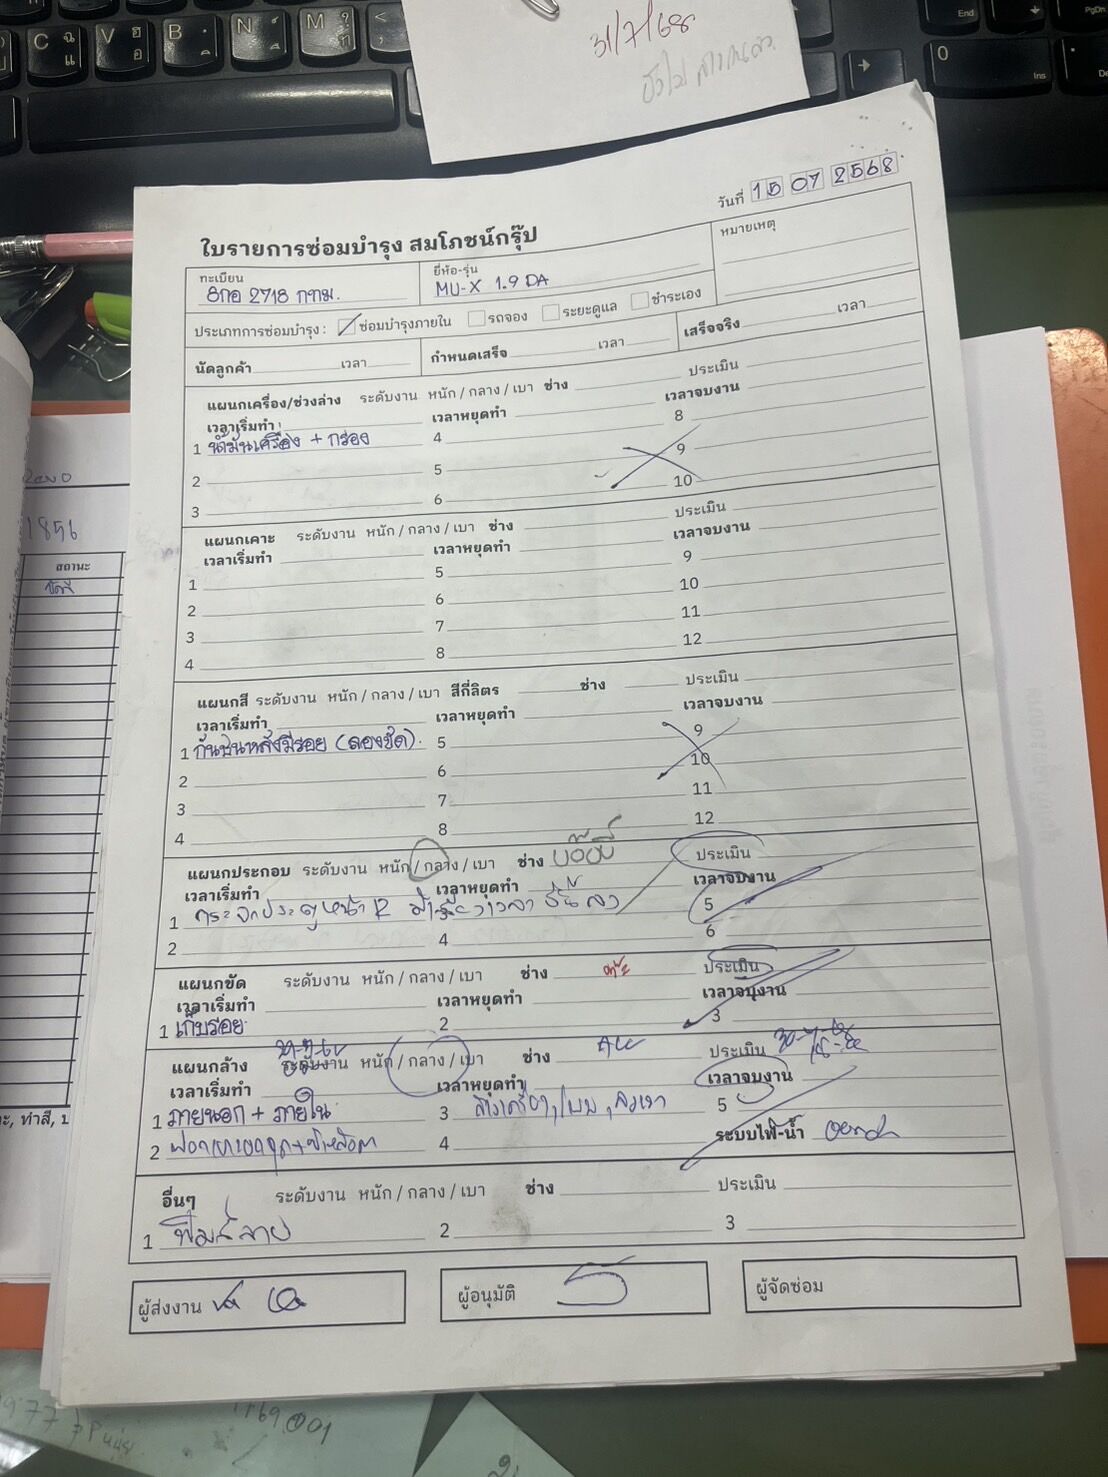 31/7/68
วันที่ 15 07 2568
ใบรายการซ่อมบำรุง สมโภชน์กรุ๊ป
หมายเหตุ
ทะเบียน
8กอ 2718 กทม.
ยี่ห้อ-รุ่น
MU-X 1.9 DA
ประเภทการซ่อมบำรุง : ซ่อมบำรุงภายใน รถจอง ระยะดูแล ชำระเอง
นัดลูกค้า เวลา กำหนดเสร็จ เวลา เสร็จจริง เวลา
แผนกเครื่อง/ช่วงล่าง ระดับงาน หนัก / กลาง / เบา ช่าง ประเมิน
เวลาเริ่มทำ เวลาหยุดทำ เวลาจบงาน
1 น้ำมันเครื่อง + กรอง 4 8
2 5 9
3 6 10
แผนกเคาะ ระดับงาน หนัก / กลาง / เบา ช่าง ประเมิน
เวลาเริ่มทำ เวลาหยุดทำ เวลาจบงาน
1 5 9
2 6 10
3 7 11
4 8 12
แผนกสี ระดับงาน หนัก / กลาง / เบา สีกี่ลิตร ช่าง ประเมิน
เวลาเริ่มทำ เวลาหยุดทำ เวลาจบงาน
1 กันชนหลังมีรอย (ลองขัด). 5 9
2 6 10
3 7 11
4 8 12
แผนกประกอบ ระดับงาน หนัก / กลาง / เบา ช่าง ประเมิน
เวลาเริ่มทำ เวลาหยุดทำ เวลาจบงาน
1 กระจกประตูหน้า 5
2 4 6
แผนกขัด ระดับงาน หนัก / กลาง / เบา ช่าง ประเมิน
เวลาเริ่มทำ เวลาหยุดทำ เวลาจบงาน
1 เก็บรอย 2 3
แผนกล้าง ระดับงาน หนัก / กลาง / เบา ช่าง ประเมิน
เวลาเริ่มทำ เวลาหยุดทำ เวลาจบงาน
1 ภายนอก + ภายใน 3 5
2 4 ระบบไฟ-น้ำ
อื่นๆ ระดับงาน หนัก / กลาง / เบา ช่าง ประเมิน
1 2 3
ผู้ส่งงาน ผู้อนุมัติ ผู้จัดซ่อม
1856
สถานะ